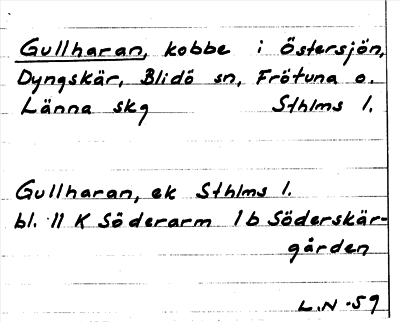 Gullharan, kobbe i Östersjön,
Dyngskär, Blidö sn, Frötuna o.
Länna skg Sthlms l.
Gullharan, ek Sthlms l.
bl. 11 K Söderarm 1b Söderskär-
gården
L.N -59